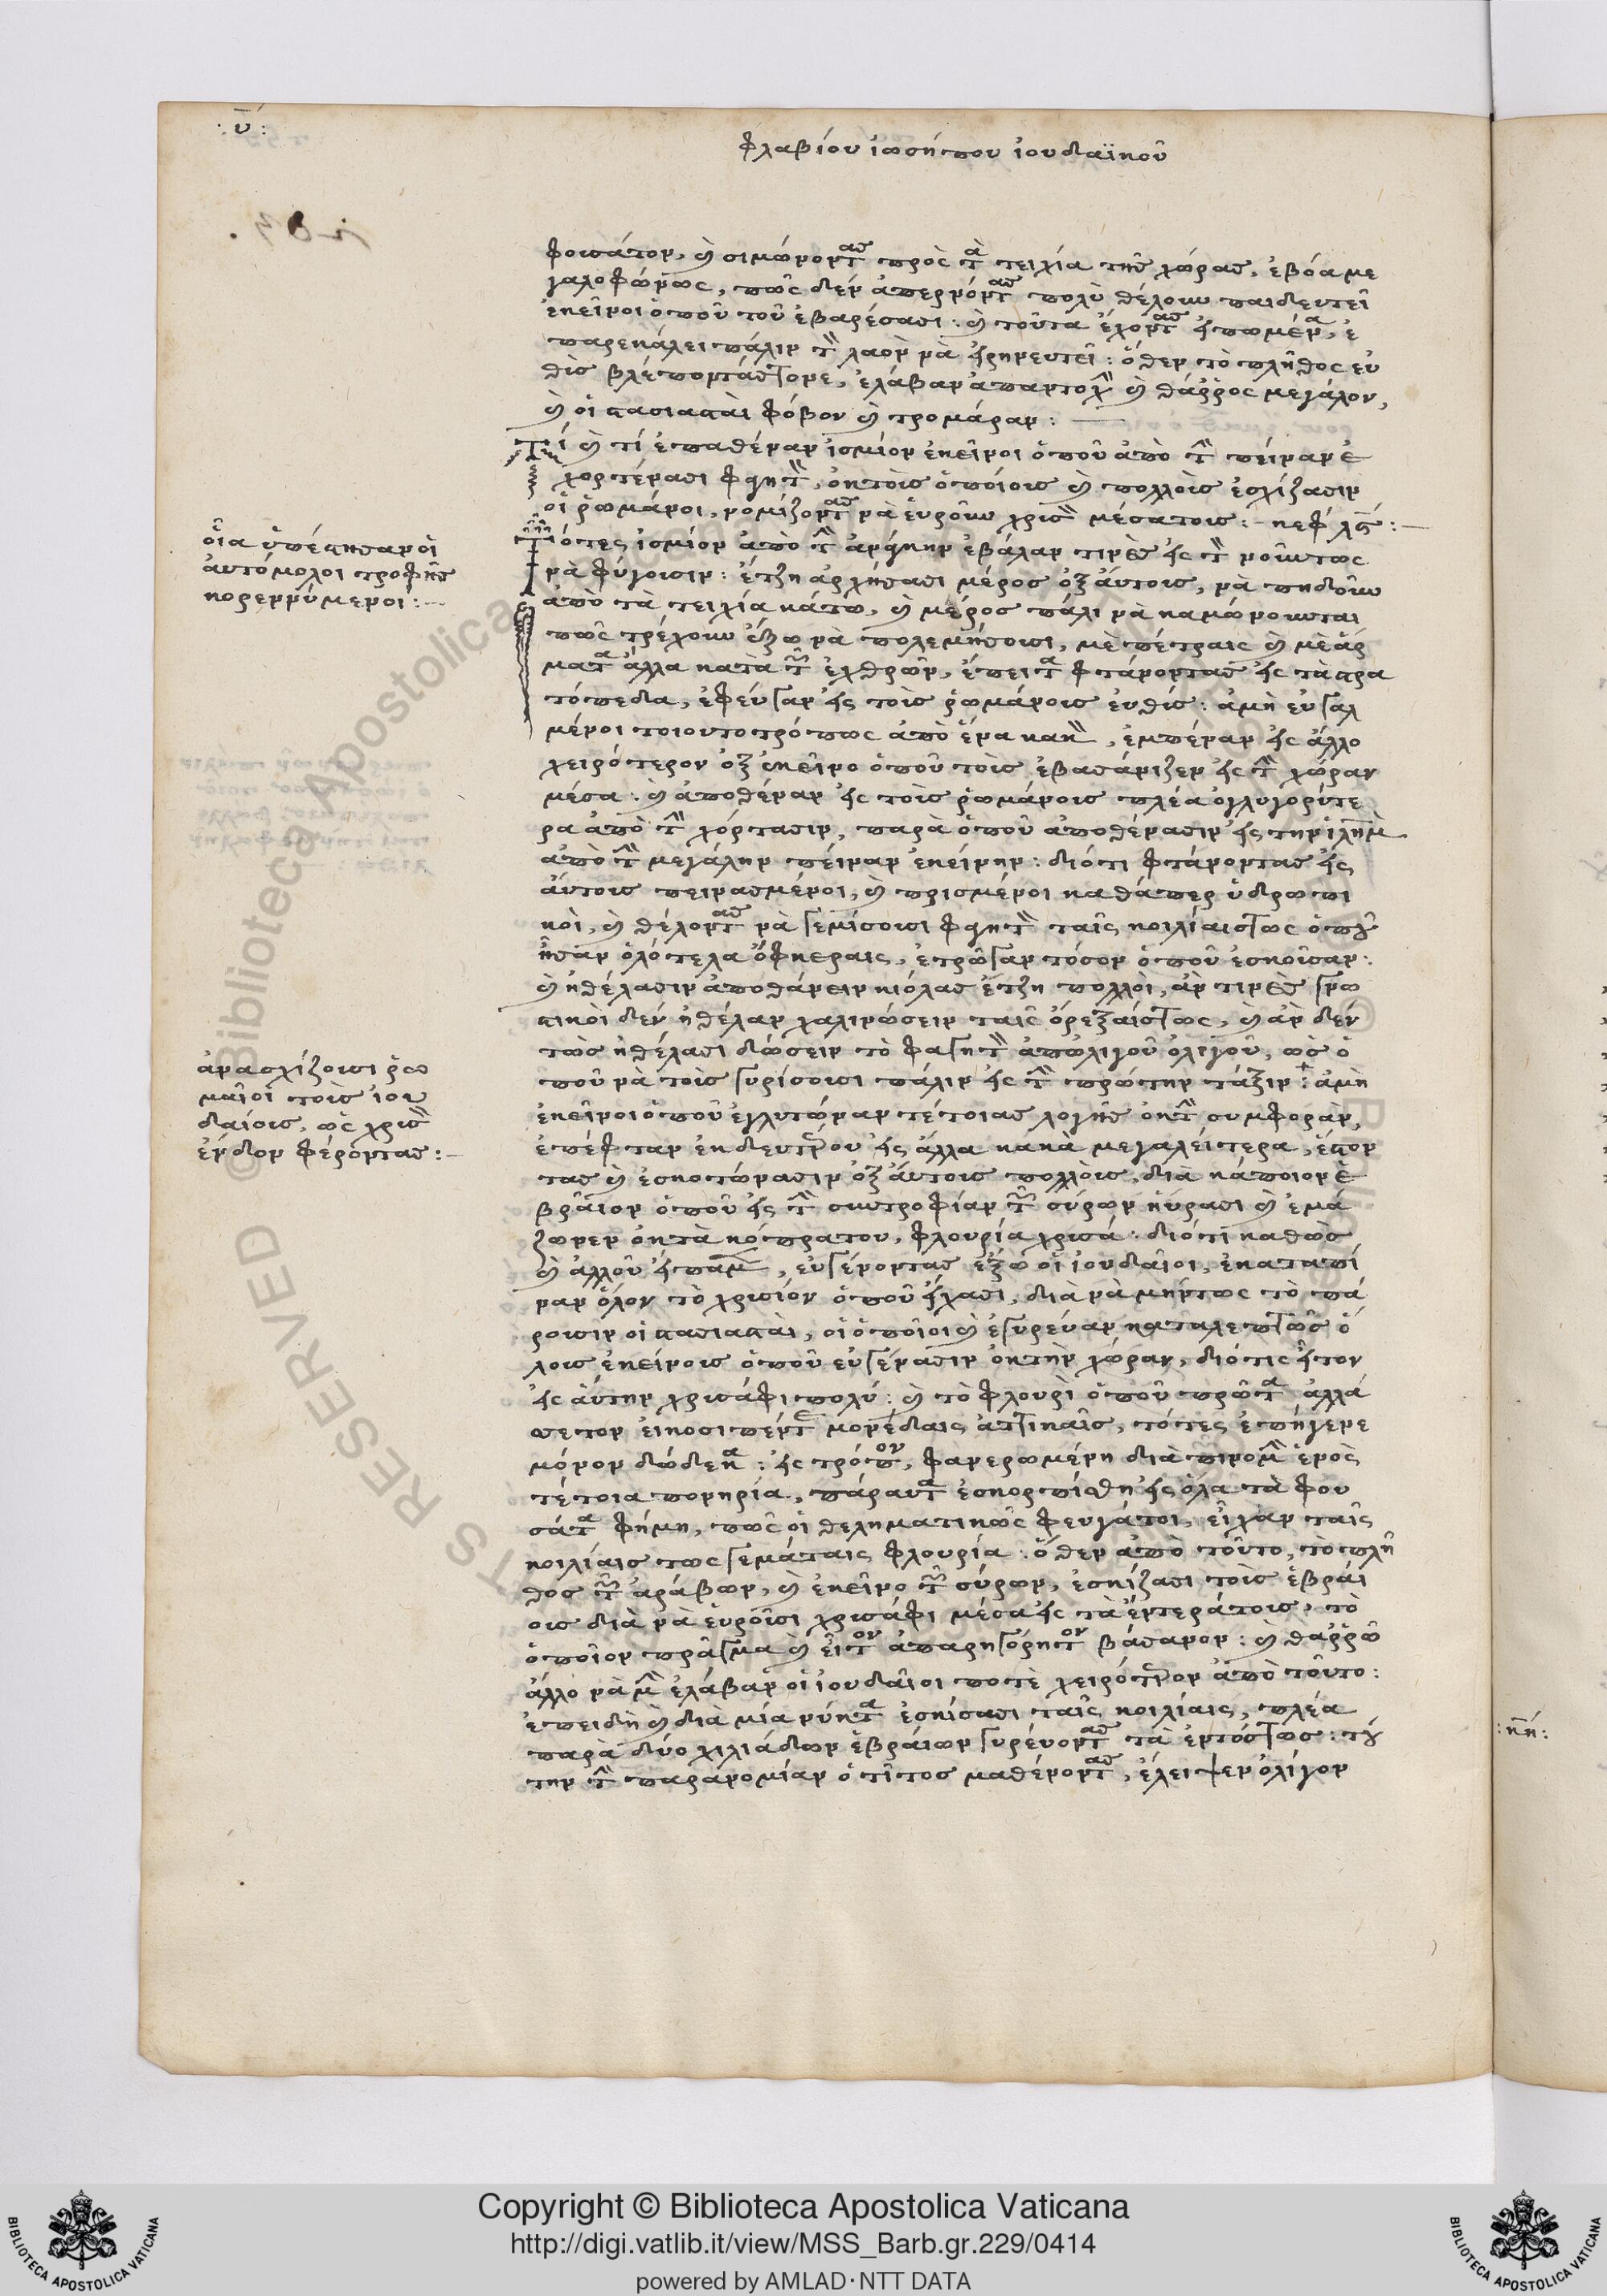 : ν̄ :
φλαβίου ἰωσήπου ἰουδαϊκοῦ
φουσάτον, καὶ σιμώνοντας πρὸς τὰ τειχία τῆς χώρας, ἐβόα με
γαλοφώνως, πῶς δὲν ἀπερνόντας πολὺ θέλουν παιδευτεῖ
ἐκεῖνοι ὁποῦ τοῦ ἐβαρέσασι: καὶ τοῦτα ἔχοντας εἰπωμένα, ἐ
παρεκάλει πάλιν τὸν λαὸν νὰ εἰρηνευτεῖ: ὅθεν τὸ πλῆθος εὐ
θὶς βλέποντάς τονε, ἐλάβαν ἀπαντοχὴν καὶ θάρρος μεγάλον,
καὶ οἱ στασιασταὶ φόβον καὶ τρομάραν:
Τί καὶ τί ἐπαθέναν ἰσμίον ἐκεῖνοι ὁποῦ ἀπὸ τὴν πεῖναν ἐ
χορτένασι φαητὸν, ἐκ τοὶς ὁποίοις καὶ πολλοὶς ἐσχίζασιν
οἱ ῥωμάνοι, νομίζοντας νὰ εὑροῦν χρισὸν μέσα τοις: κεφ
Τιότες ἰσμίον ἀπὸ τὴν ἀνάγκην ἐβάλαν τινὲς εἰς τὸν νοῦν τως
νὰ φύγουσιν: ἔτζη ἀρχήσασι μέρος ἐξ αὐτοις, νὰ πηδοῦν
ἀπὸ τὰ τειχία κάτω, καὶ μέρος πάλι νὰ καμώνουνται
πῶς τρέχουν ἔξω νὰ πολεμήσουσι, μὲ πέτραις καὶ μὲ ἄρ
ματα ἄλλα κατὰ τῶν ἐχθρῶν, ἔπειτα φτάνοντας εἰς τὰ στρα
τόπεδα, ἐφεύγαν εἰς τοὶς ῥωμάνοις εὐθίς: ἀμὴ εὐγαλ
μένοι τοιουτοτρόπως ἀπὸ ἕνα κακὸν, ἐμπέναν εἰς ἄλλο
χειρότερον ἐξ ἐκεῖνο ὁποῦ τοὶς ἐβασάνιζεν εἰς τὴν χώραν
μέσα: καὶ ἀποθέναν εἰς τοὶς ῥωμάνοις πλέα ὀγλυγορύτε
ρα ἀπὸ τὴν χόρτασιν, παρὰ ὁποῦ ἀποθένασιν εἰς τὴν ἱλὴμ
ἀπὸ τὴν μεγάλην πεῖναν ἐκείνην: διότι φτάνοντας εἰς
αὐτοις πεινασμένοι, καὶ πρισμένοι καθάπερ ὑδρωπι
κοὶ, καὶ θέλοντας νὰ γεμίσουσι φαητὸν ταῖς κοιλίαις τως ὁποῦ
ἦσαν ὁλότελα εὔκεραις, ἐτρῶγαν τόσον ὁποῦ ἐσκοῦσαν:
καὶ ἠθέλασιν ἀποθάνειν κιόλας ἔτζη πολλοὶ, ἂν τινὲς γνω
στικοὶ δὲν ἠθέλαν χαλινώσειν ταῖς ὀρεξαίς τως, καὶ ἂν δὲν
τὼς ἠθέλασι δώσειν τὸ φαγητὸν ἀπολιγοῦ ὀλιγοῦ, ὡς ὁ
ποῦ νὰ τοὶς γυρίσουσι πάλιν εἰς τὴν πρώτην τάξιν: ἀμὴ
ἐκεῖνοι ὁποῦ ἐγλυτώναν τέτοιας λογῆς ἐκ τὴν συμφορὰν,
ἐπέφταν ἐκ δευτέρου εἰς ἄλλα κακὰ μεγαλείτερα, ἔστον
τας καὶ ἐσκοτώνασιν ἐξ αὐτοις πολλοὶς, διὰ κάποιον ἑ
βραῖον ὁποῦ εἰς τὴν συντροφίαν τῶν σύρων ηὕρασι καὶ ἐμά
ζωνεν ἐκ τὰ κόπρα του, φλουρία χρισά: διότι καθὼς
καὶ ἀλλοῦ εἴπαμεν, εὐγένοντας ἔξω οἱ ἰουδαῖοι, ἐκαταπί
ναν ὅλον τὸ χρισίον ὁποῦ εἴχασι, διὰ νὰ μήν τως τὸ πά
ρουσιν οἱ στασιασταὶ, οἱ ὁποῖοι καὶ ἐγυρεύαν καταλεπτῶς ὅ
λοις ἐκείνοις ὁποῦ εὐγένασιν ἐκ τὴν χώραν, διότις εἶτον
εἰς αὐτὴν χρισάφι πολύ: καὶ τὸ φλουρὶ ὁποῦ πρῶτα ἀλλά
σετον εἰκοσιπέντε μονέδαις ἀττικαῖς, τότες ἐπήγενε
μόνον δώδεκα: εἰς τρόπον, φανερωμένη διὰ πινομὴ ἑνὸς
τέτοια πονηρία, πάραυτα ἐσκορπίσθη εἰς ὅλα τὰ φου
σάτα φήμη, πῶς οἱ θεληματικῶς φευγάτοι, εἶχαν ταῖς
κοιλίαις τως γεμάταις φλουρία: ὅθεν ἀπὸ τοῦτο, τὸ πλῆ
θος τῶν ἀράβων, καὶ ἐκεῖνο τῶν σύρων, ἐσκίζασι τοὶς ἑβραί
οις διὰ νὰ εὑροῦσι χρισάφι μέσα εἰς τὰ ἔντερά τοις, τὸ
ὁποῖον πρᾶγμα καὶ εἶτον ἀπαρηγόρητον βάσανον: καὶ θαρρῶ
ἄλλο νὰ μὴν ἐλάβαν οἱ ἰουδαῖοι ποτὲ χειρότερον ἀπὸ τοῦτο:
ἐπειδὴ καὶ διὰ μία νύκτα ἐσκίσασι ταῖς κοιλίαις, πλέα
παρὰ δύο χιλιάδων ἑβραίων γυρεύοντας τὰ ἐντός τως: τού
την τὴν παρανομίαν ὁ τίτος μαθένοντας, ἔλειψεν ὀλίγον
οἷα ὑπέστησαν οἱ
αὐτόμολοι τροφῆς
κορεννύμενοι:
ἀνασχίζουσι ῥω
μαῖοι τοὶς ἰου
δαίοις, ὡς χρισὸν
ἔνδον φέροντας:
: κη :
Copyright © Biblioteca Apostolica Vaticana
http://digi.vatlib.it/view/MSS_Barb.gr.229/0414
powered by AMLAD·NTT DATA